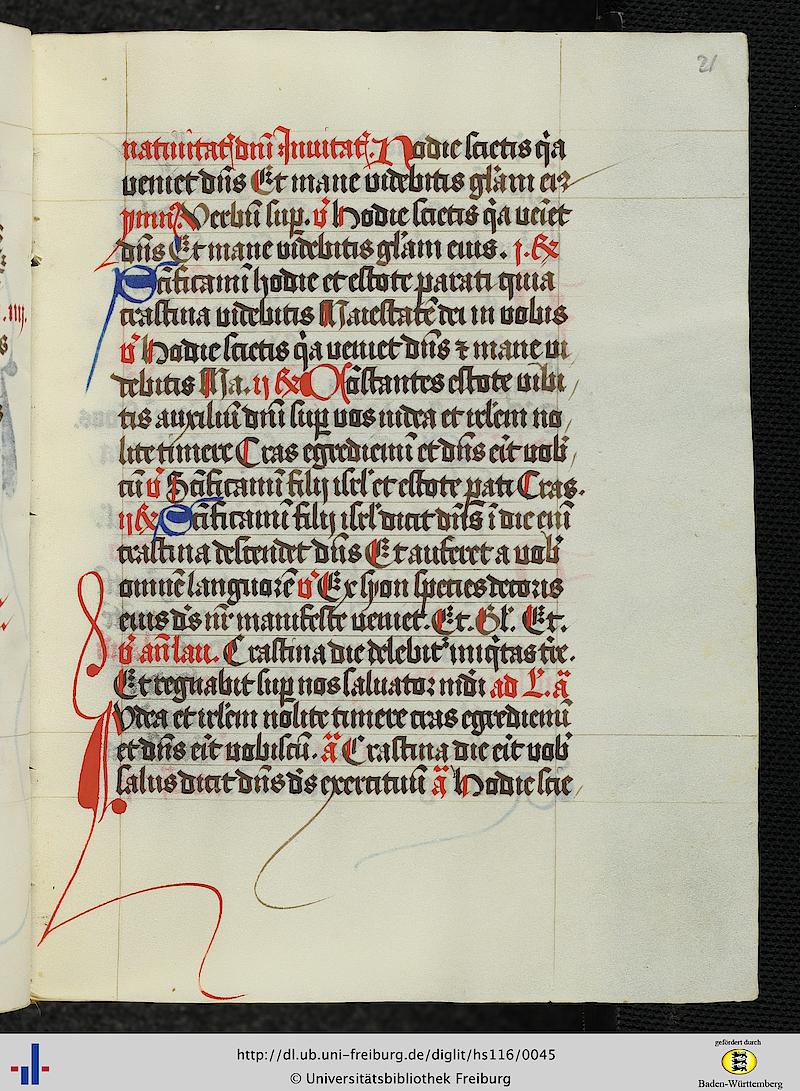 21
natiuitat̄ dn̄i Inuitat̄. Hodie scietis q̇a
veniet dn̄s Et mane videbitis gl̄am eiꝰ
ymn̄. Verbū sup. v̄ Hodie scietis q̇a veīet
dn̄s Et mane videbitis gl̄am eius. j. R̄
Sc̄ificamī hodie et estote parati quia
crastina videbitis Maiestatē dei in vobis
v̄ Hodie scietis q̇a veniet dn̄s ⁊ mane vi
debitis Ma. ij R̄ Cōstantes estote vibi
tis auxiliū dn̄i sup vos iudea et irl̄em no
lite timere Cras egrediemī et dn̄s eīt vob̄
cū v̄ Sc̄ificamī filij isrl̄ et estote p̱ati Cras.
iij R̄ Sc̄ificamī filij isrl̄ dicit dn̄s ī die eīī
crastina descendet dn̄s Et auferet a vob̄
omnē languorē v̄ Ex syon species decoris
eius d̄s nr̄ manifeste veniet. Et. Gl̄. Et.
v̄ an̄ lau. Crastina die delebit᷑ iniq̇tas tr̄e.
Et regnabit sup nos saluator mūdi ad L. ā
Iudea et irl̄em nolite timere cras egrediemī
et dn̄s eīt vobiscū. ā Crastina die eīt vob̄
salus dicit dn̄s d̄s exercituū ā Hodie scie
http://dl.ub.uni-freiburg.de/diglit/hs116/0045
© Universitätsbibliothek Freiburg
gefördert durch
Baden-Württemberg